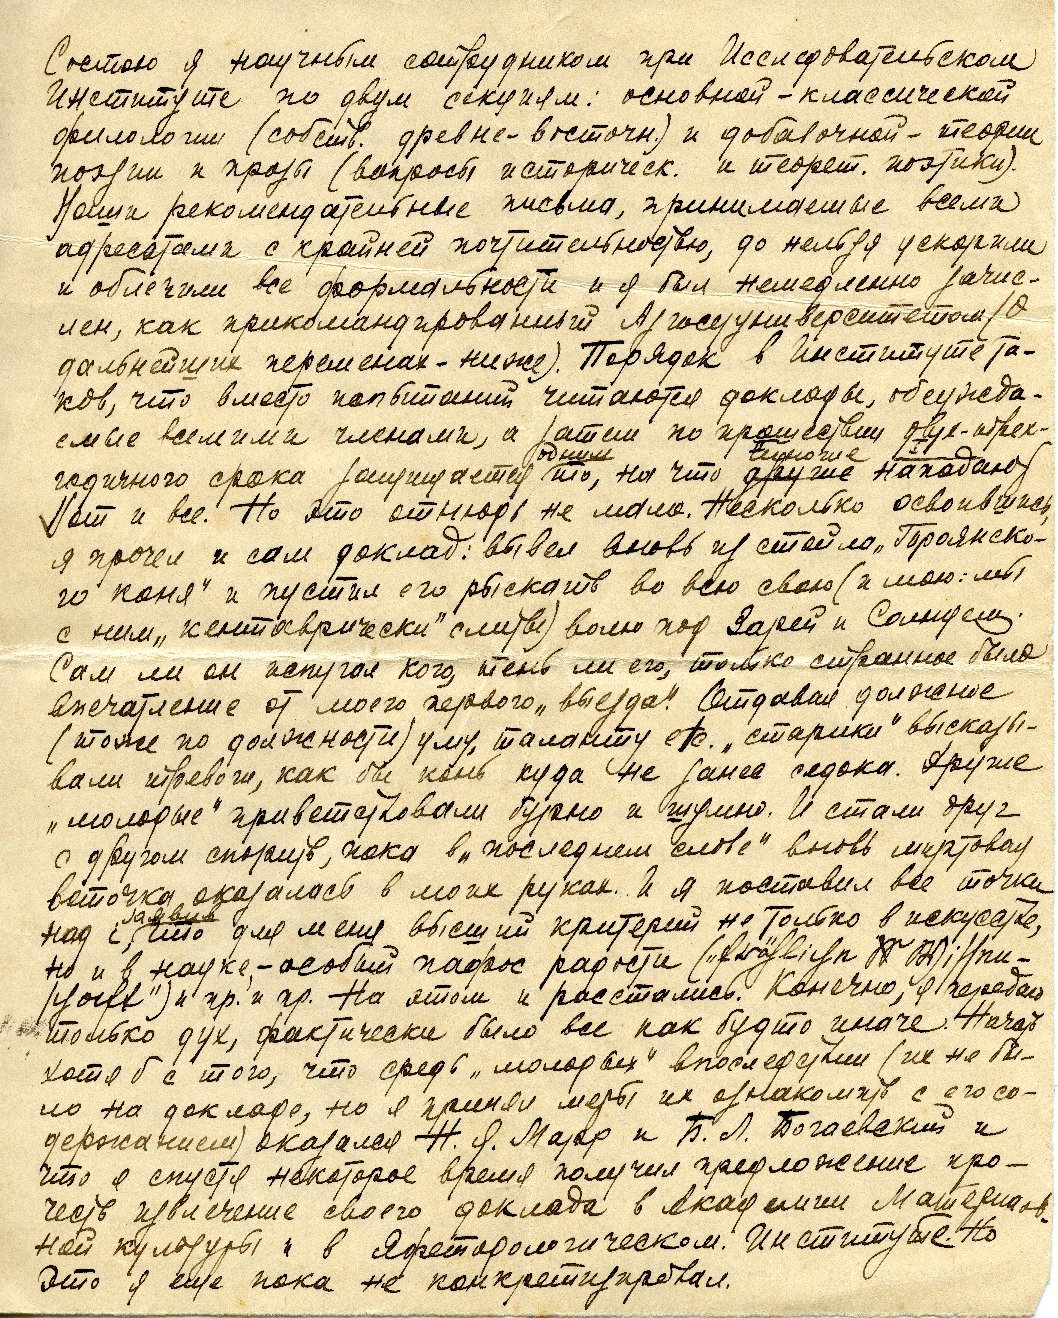 Состою я научным сотрудником при Исследовательском
Институте по двум секциям: основной – классической
филологии (собств. древне-восточн.) и добавочной – теории
поэзии и прозы (вопросы историческ. и теорет. поэтики).
Ваши рекомендательные письма, принимаемые всеми
адресатами с крайней почтительностью, до нельзя ускорили
и облегчили все формальности и я был немедленно зачис-
лен, как прикомандированный Азгосуниверситетом (о
дальнейших переменах – ниже). Порядок в Институте та-
ков, что вместо испытаний читаются доклады, обсужда-
емые всеми членами, а затем по прошествии двух-трех-
годичного срока защищается одним то, на что другие многие нападают
Вот и все. Но это отнюдь не мало. Несколько освоившись,
я прочел и сам доклад: вывел вновь из стойла „Троянско-
го коня" и пустил его рыскать во всю свою (и мою: мы
с ним „кентаврически" слиты) волю под Зарей и Солнцем.
Сам ли он испугал кого, тень ли его, только странное было
впечатление от моего первого „выезда". Отдавая должное
(тоже по должности) уму, таланту etc. „старики" высказы-
вали тревоги, как бы конь куда не занес седока. Другие
„молодые" приветствовали бурно и шумно. И стали друг
с другом спорить, пока в „последнем слове" вновь миртовая
веточка оказалась в моих руках. И я поставил все точки
над i, заявив что для меня высший критерий не только в искусстве,
но и в науке, – особый пафос радости („fröhliche Wissen-
schaft") и пр. и пр. На этом и расстались. Конечно, я передаю
только дух, фактически было все как будто иначе. Начать
хотя б с того, что средь „молодых" впоследствии (их не бы-
ло на докладе, но я принял меры их ознакомить с его со-
держанием) оказался Н. Я. Марр и Б. Л. Богаевский и
что я спустя некоторое время получил предложение про-
честь извлечение своего доклада в Академии Материаль-
ной культуры и в Яфетодологическом. Институте. Но
это я еще пока не конкретизировал.